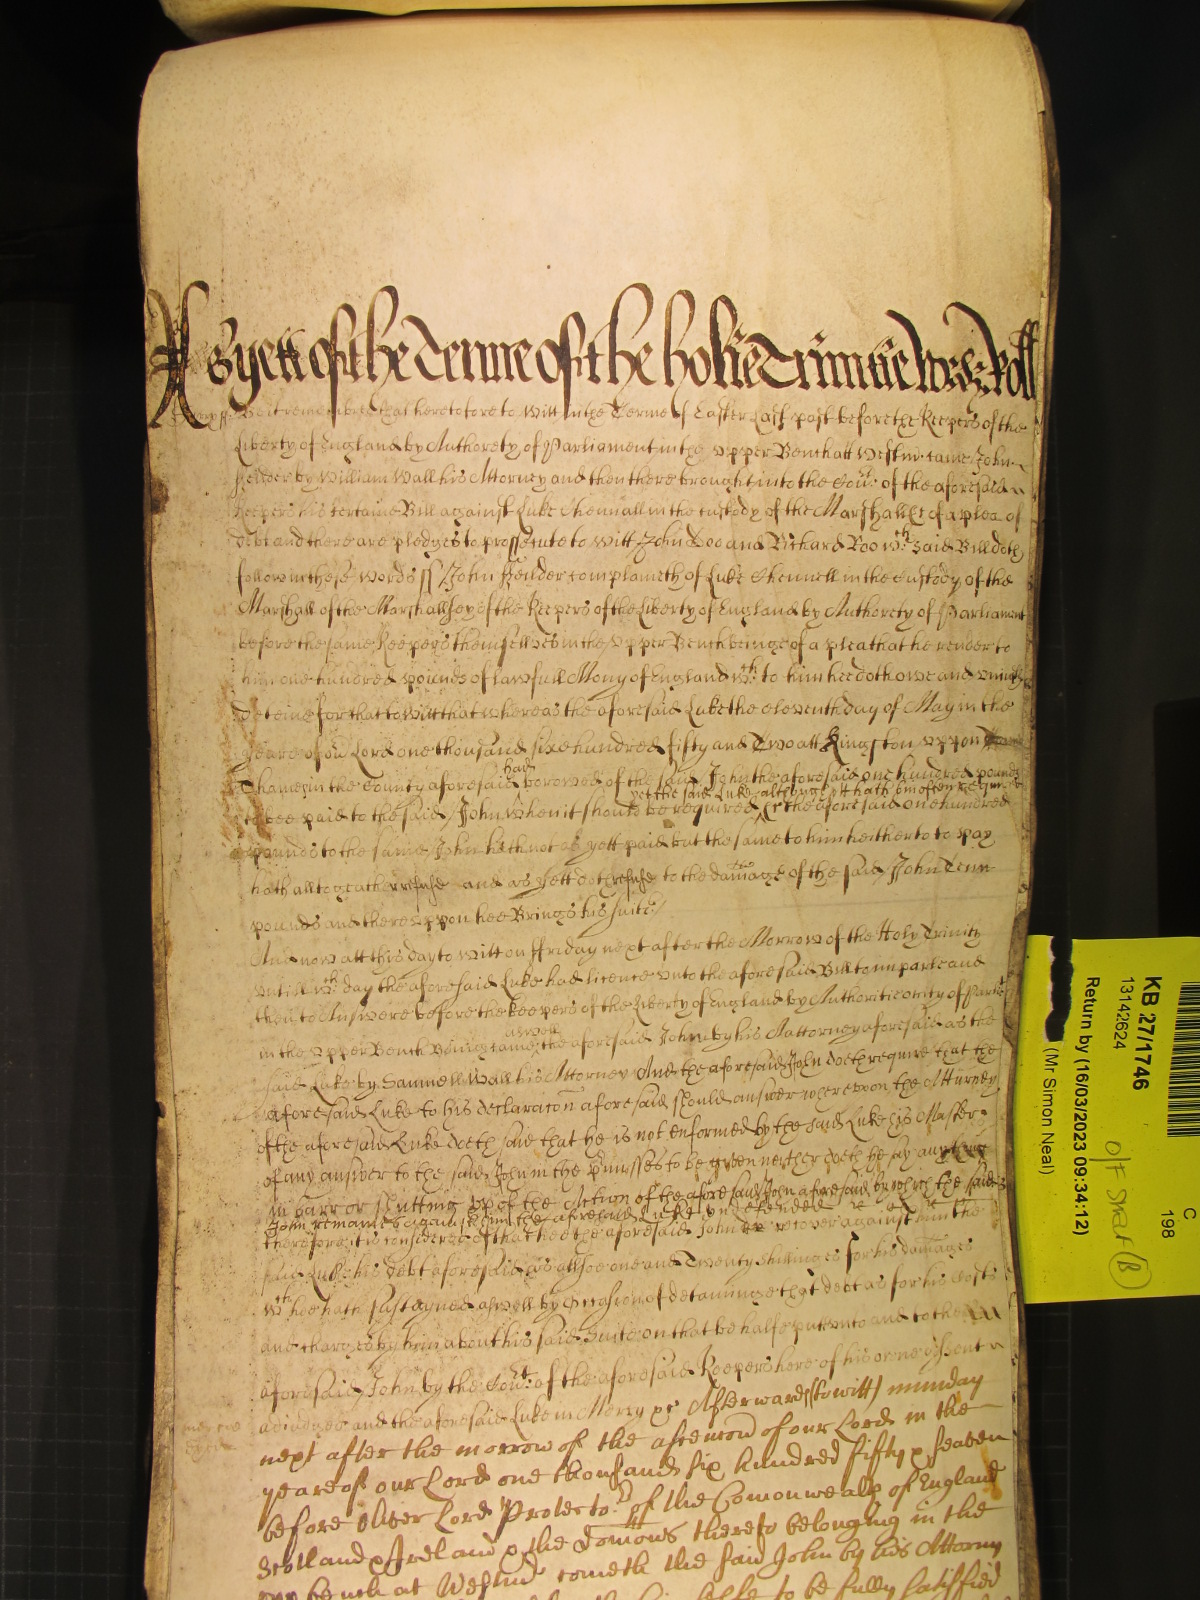 As yett of the Terme of the holie Trinitie Roll
Bee it remembred that heretofore to witt in the Terme of Easter last past before the Keepers of the
Liberty of England by Authorety of Parliament in the upper Bench att Westmr: came John
by William Wall his Attorney and then there brought into the Court: of the aforesaid
Keepers his certaine Bill against Luke Skennall in the custody of the Marshall &c of a plea of
debt and there are pledges to prossecute to witt John Doo and Richard Roo wch: said Bill doth
follow in these words ss John complaineth of Luke Skennell in the Custody of the
Marshall of the Marshallsey of the Keepers of the Liberty of England by Authorety of Parliament
before the same Keepers themsellves in the upper Bench beinge of a plea that he render to
him one hundred pounds of lawfull Mony of England wch: to him hee doth owe and uniustly
deteine for that to witt that whereas the aforesaid Luke the eleventh day of May in the
yeare of our Lord one thousand sixe hundred fifty and Two att Kingston uppon
Thames in the County aforesaid had borowed of the said John the aforesaid one hundred pounds
to bee paid to the said John when it should be required yet the said Luke although itt hath bin often required &c the aforesaid one hundred
pounds to the same John hath not as yett paid but the same to him hitherto to pay
hath alltogeather refused and as yett doth refuse to the damage of the said John Tenn
pounds and thereuppon hee Brings his suite /
And now att this day to witt on ffriday next after the Morrow of the Holy Trinity
untill wch: day the aforesaid Luke had licence unto the aforesaid Bill to imparle and
then to Answere before the keepers of the Liberty of England by Authoritie of Parlit
in the upper Bench came aswell the aforesaid John by his Aattorney aforesaid as the
said Luke by Samuell Wall his Attorney And the aforesaid John doeth require that the
aforesaid Luke to his declaracon aforesaid should answer whereupon the Atturney
of the aforesaid Luke doeth saie that he is not enformed by the said Luke his Master
of any answer to the said John in the p'misses to be given neither doeth he say anything
in barr or shutting up of the Action of the aforesaid John aforesaid by which the said
John remaines against him the aforesaid Luke undefended
therefore it is considered of that hee the aforesaid John recover against him the
said Luke his debt aforesaid as allsoe one and Twenty shillinges for his damages
wch hee hath sustayned aswell by Occasion of detaininge that debt as for his Costs
and charges by him about his said suite on that behalfe put unto and to the
aforesaid John by the Court: of the aforesaid Keepers here of his owne assent
adiudged and the aforesaid Luke in Mercy &c Afterwards (to witt) munday
next after the morrow of the ascencon of our Lord in the
yeare of our Lord one thousand six hundred fifty & seaven
before Oliver Lord Protector of the Comonwealth of England
Scotland & Ireland & the Domions thereto belonging in the
upp bench at Westmr cometh the said John by his Attorny
to be fully satisfied
mercie
KB 27/1746
13142624
Return by (16/03/2023 09:34:12)
(Mr Simon Neal)
C
198
O/F Street (B)